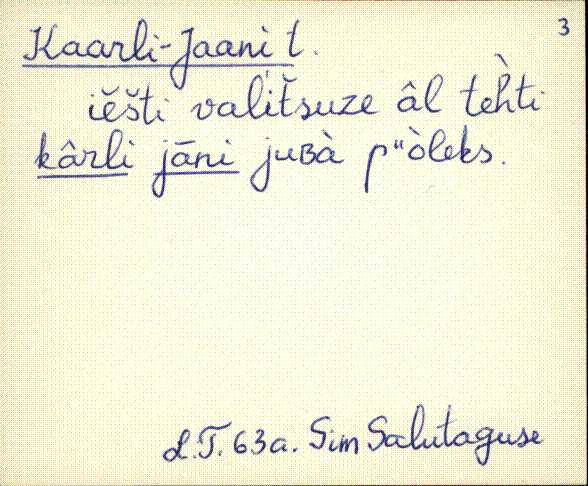 3
Kaarli-Jaani t.
iěšti valitšuze âl teh̀ti
kârli jāni juʙà pᵘòleks.
L.T. 63a. Sim Salutaguse